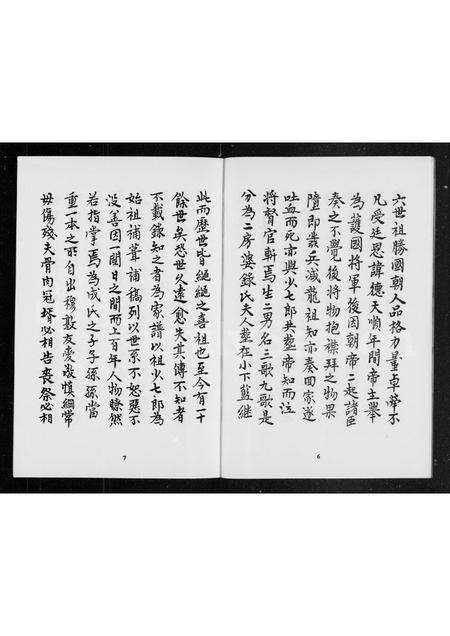 六世祖勝國朝人品格力量卓犖不
凡受廷恩諱德天順年間帝主舉
為護國將軍後因朝帝一起諸臣
奏之不覺後將物抱襟拜之物果
墮即叢兵滅龍祖知亦奏回家遂
吐血而死亦與少七郎共塟帝知而泣
將督官斬焉生二男名三歌九歌是
分為二房婆錄氏夫人塟在小下藍繼
6
此而歷世皆繩繩之喜祖也至今有一十
餘世矣恐世久遠愈失其傳不知者
不載錄知之者為家譜以祖少七郎為
始祖補葺補稿列以世系不恕惡不
没善因一閱日之間而上百年人物瞭然
若指掌焉為成氏之子子孫孫當
重一本之所自出穆敦友愛敬慎綱常
毋傷殘夫骨肉冠壻必相告喪祭必相
7